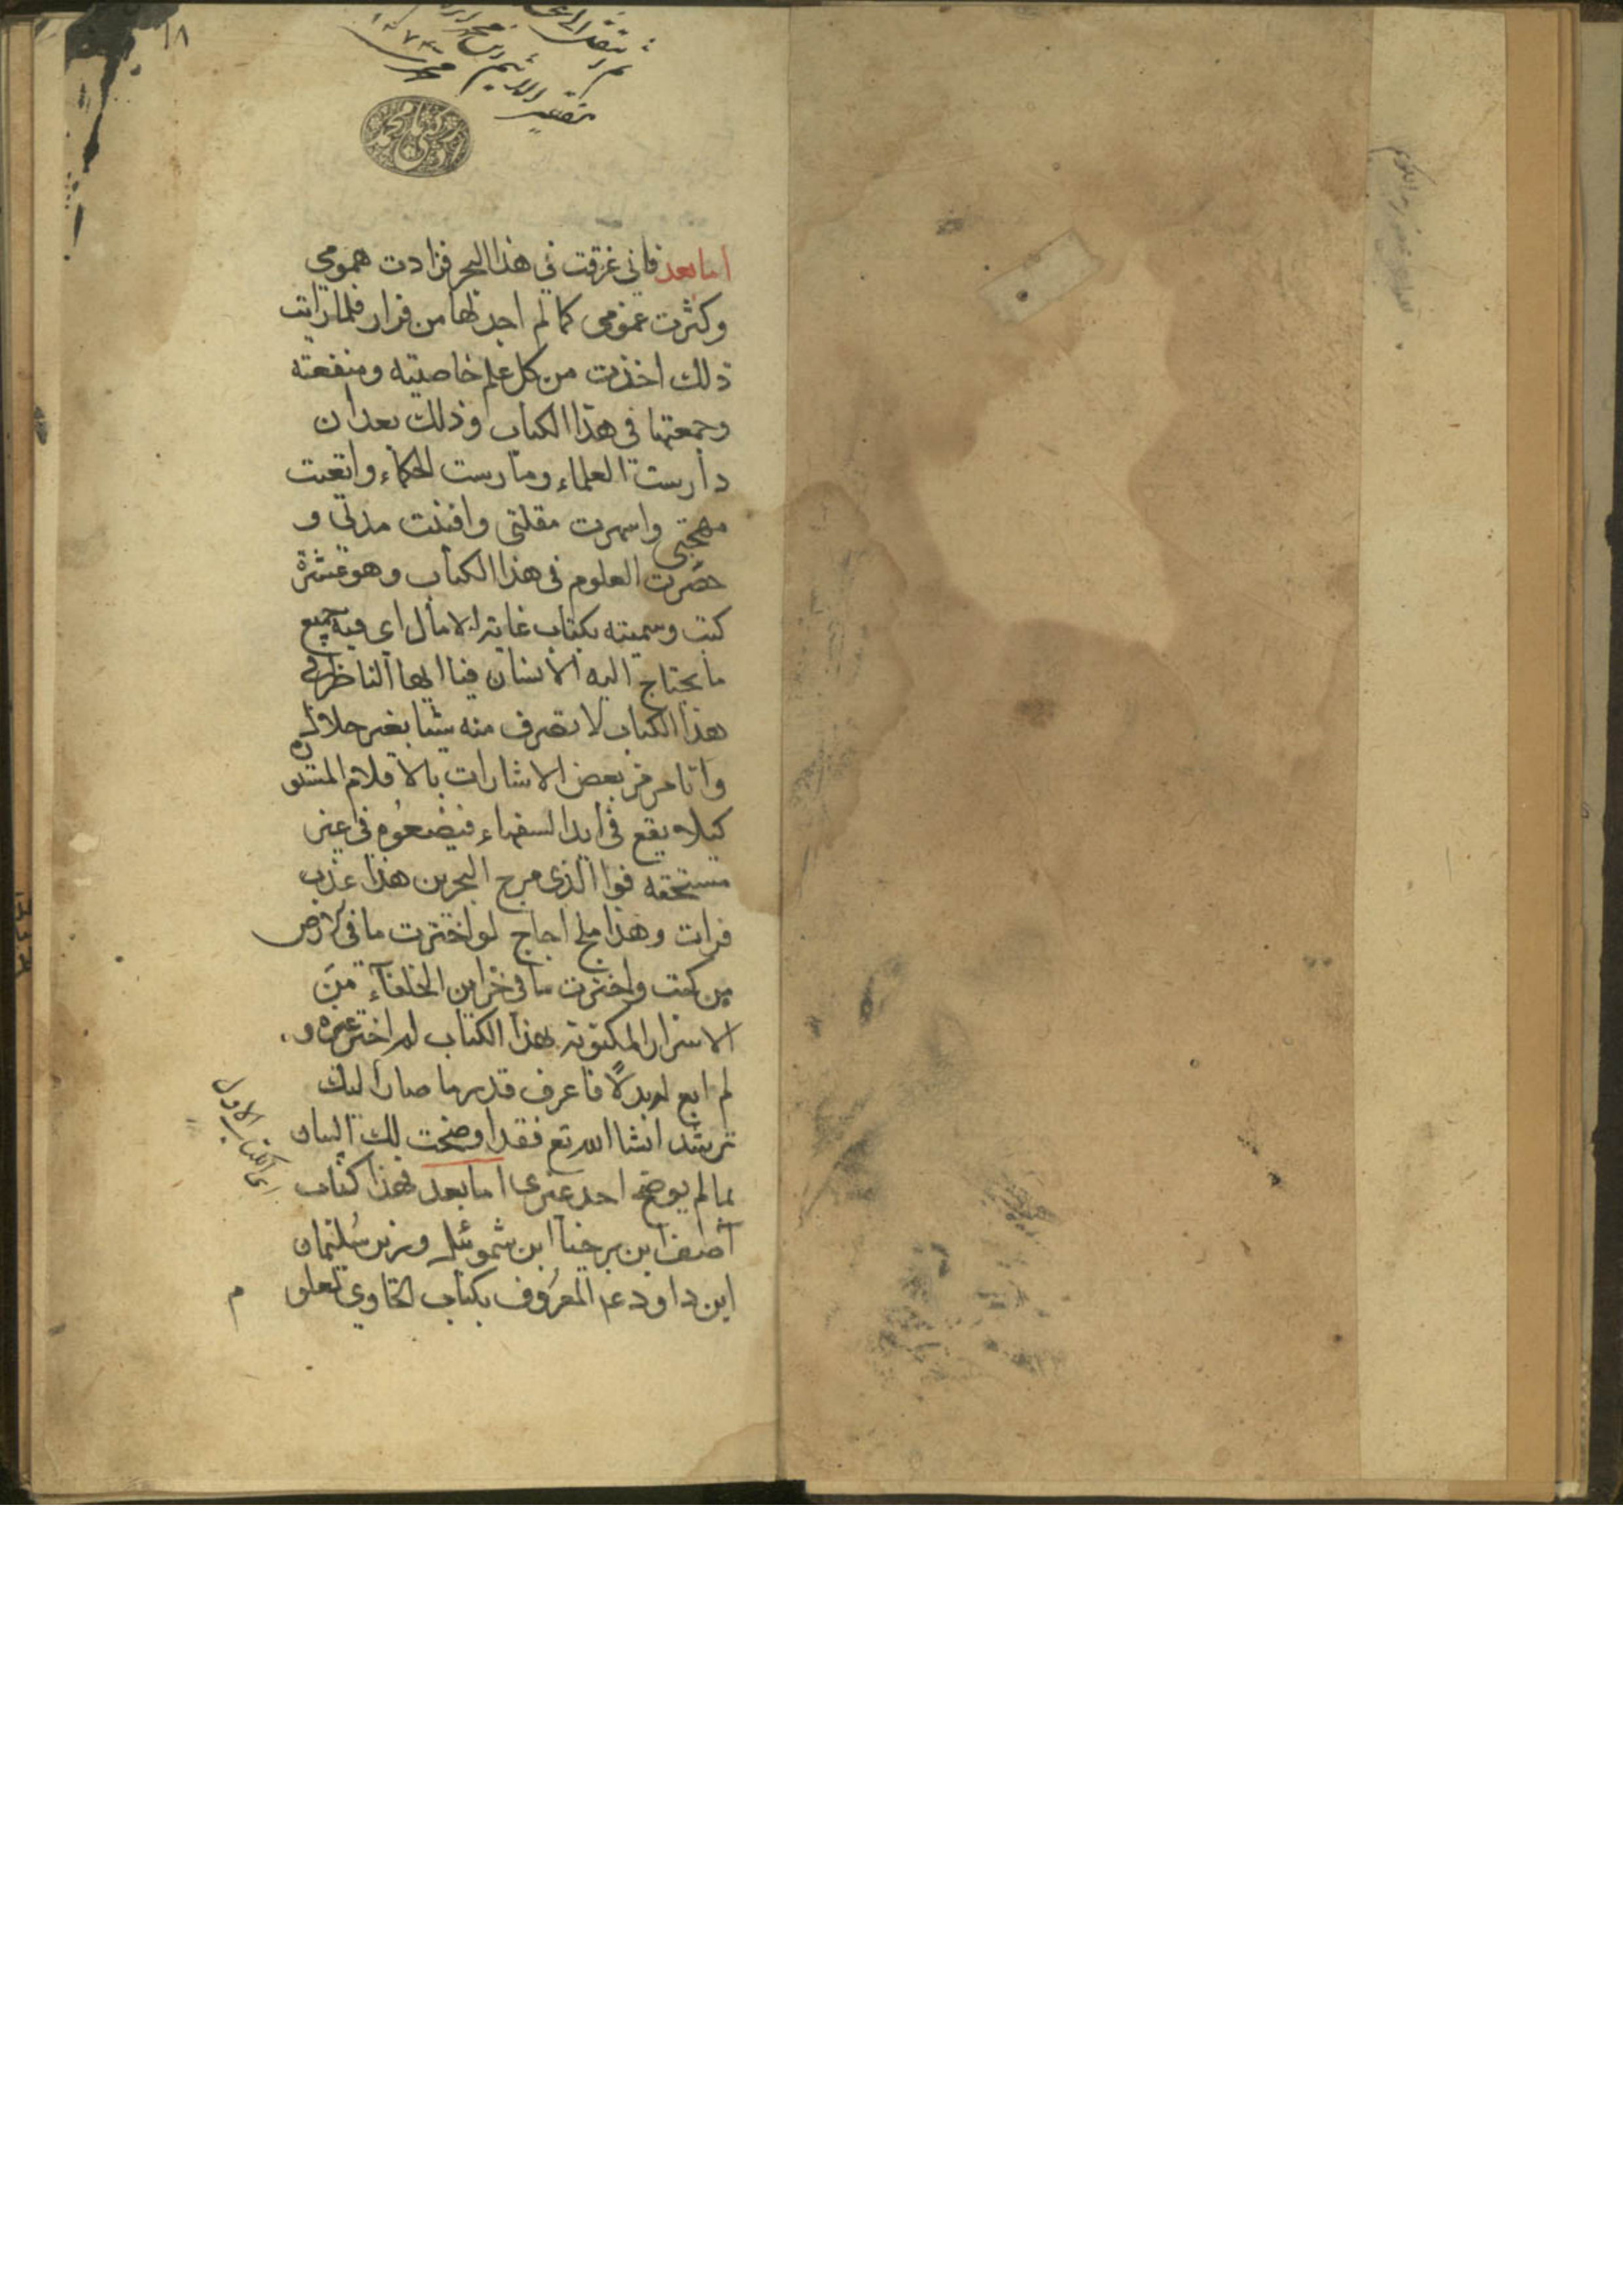 ١٨
اما بعد فاني غرقت في هذا البحر فزادت همومي
وكثرت غمومي كما لم اجد لها من قرار فلما رايت
ذلك اخذت من كل علم خاصيته ومنفعته
وجمعتها في هذا الكتاب وذلك بعد ان
دارست العلماء ومارست الحكماء واتعبت
مهجتي واسهرت مقلتي وافنيت مدتي و
حصرت العلوم في هذا الكتاب وهو عشرة
كتب وسميته بكتاب غاية الامال اي فيه جميع
ما يحتاج اليه الانسان فيا ايها الناظر في
هذا الكتاب لا تصرف منه شيا بغير حلال
وانا مرمز بعض الاشارات بالاقلام
كيلا يقع في ايدا السفهاء فيضعوه في غير
مستحقه فوا الذي مرج البحرين هذا عذب
فرات وهذا ملح اجاج لو اخترت ما في الارض
من كتب واخترت ما في خزاين الخلفآء من
الاسرار المكتوبة بهذا الكتاب لم اختر غيره و
لم ابع له بدلاً فاعرف قدر ما صار اليك
ترشد انشا الله تع فقد اوضحت لك البيان
بما لم يوضح احد غيري اما بعد فهذا كتاب
آصف ابن برخيا ابن شموئيل وزير سليمان
ابن داود ع المعروف بكتاب الحاوي لعلو م
الكتاب الاول